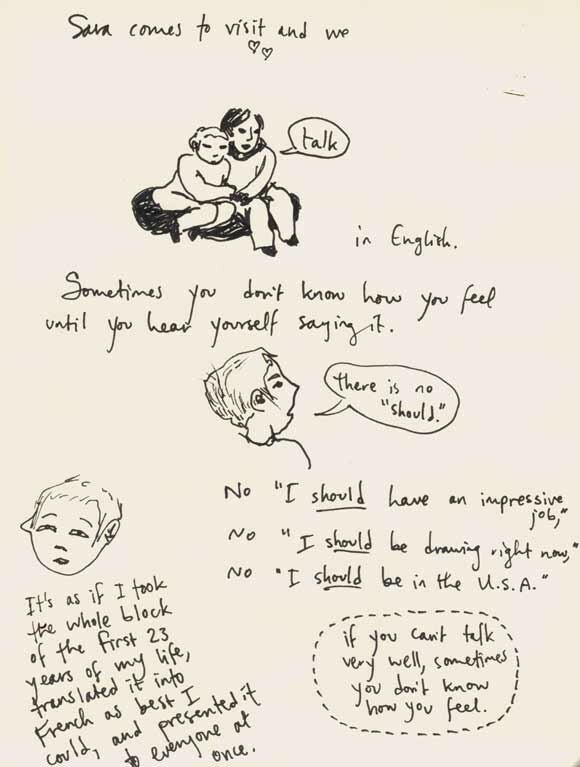 Sara comes to visit and we
talk
in English.
Sometimes you don't know how you feel
until you hear yourself saying it.
there is no
"should."
No "I should have an impressive
job,"
No "I should be drawing right now,"
No "I should be in the U.S.A."
It's as if I took
the whole block
of the first 23
years of my life,
translated it into
French as best I
could, and presented it
to everyone at
once.
if you can't talk
very well, sometimes
you don't know
how you feel.